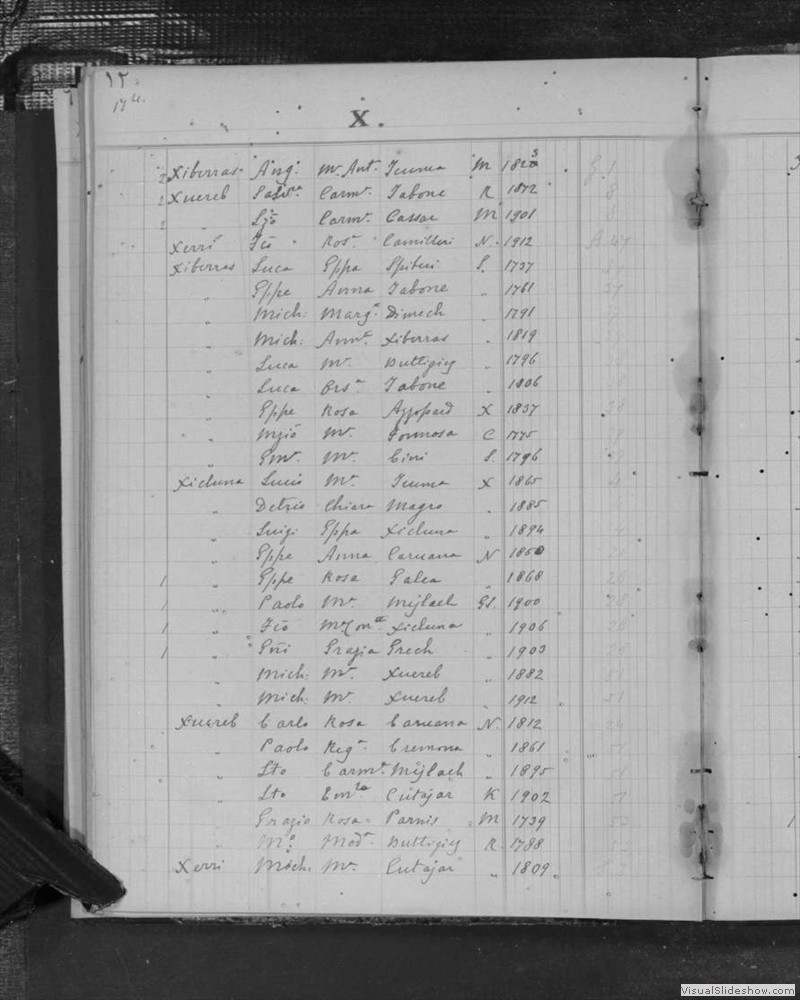 12.
17 L.
X.
2 Xiberras Ang: Mª Ant. Icuma M 1823
2 Xuereb Salvª Carmª Tabone R 1872
2 " Ljo Carmª Cassar M 1901
Xerri Fco Rosª Camilleri N. 1912
Xiberras Luca Gppa Spiteri S. 1737
" Gppe Anna Tabone " 1761
" Mich: Margª Dimech " 1791
" Mich: Annª Xiberras " 1819
" Luca Mª Buttigieg " 1796
" Luca Orsª Tabone " 1806
" Gppe Rosa Azzopard X 1837
" Mª Formosa C 1775
" Gmª Mª Cini S. 1796
Xicluna Mª Icuma X 1865
" Chiara Magro " 1885
" Luigi Gppa Xicluna " 1894
" Gppe Anna Caruana N 1850
1 " Gppe Rosa Galea " 1868
1 " Paolo Mª Mijlach Gs. 1900
1 " Fco Xicluna " 1906
1 " Gni Grazia Grech " 1903
" Mich: Mª Xuereb " 1882
" Mich: Mª Xuereb " 1912
Xuereb Carlo Rosa Caruana N. 1812
" Paolo Regª Cremona " 1861
" Sto Carmª Mijlach " 1895
" Sto Cutajar K 1902
" Grazio Rosa Parnis M 1739
" Mº Modª Buttigieg R. 1788
Xerri Mich. Mª Cutajar " 1809
VisualSlideshow.com